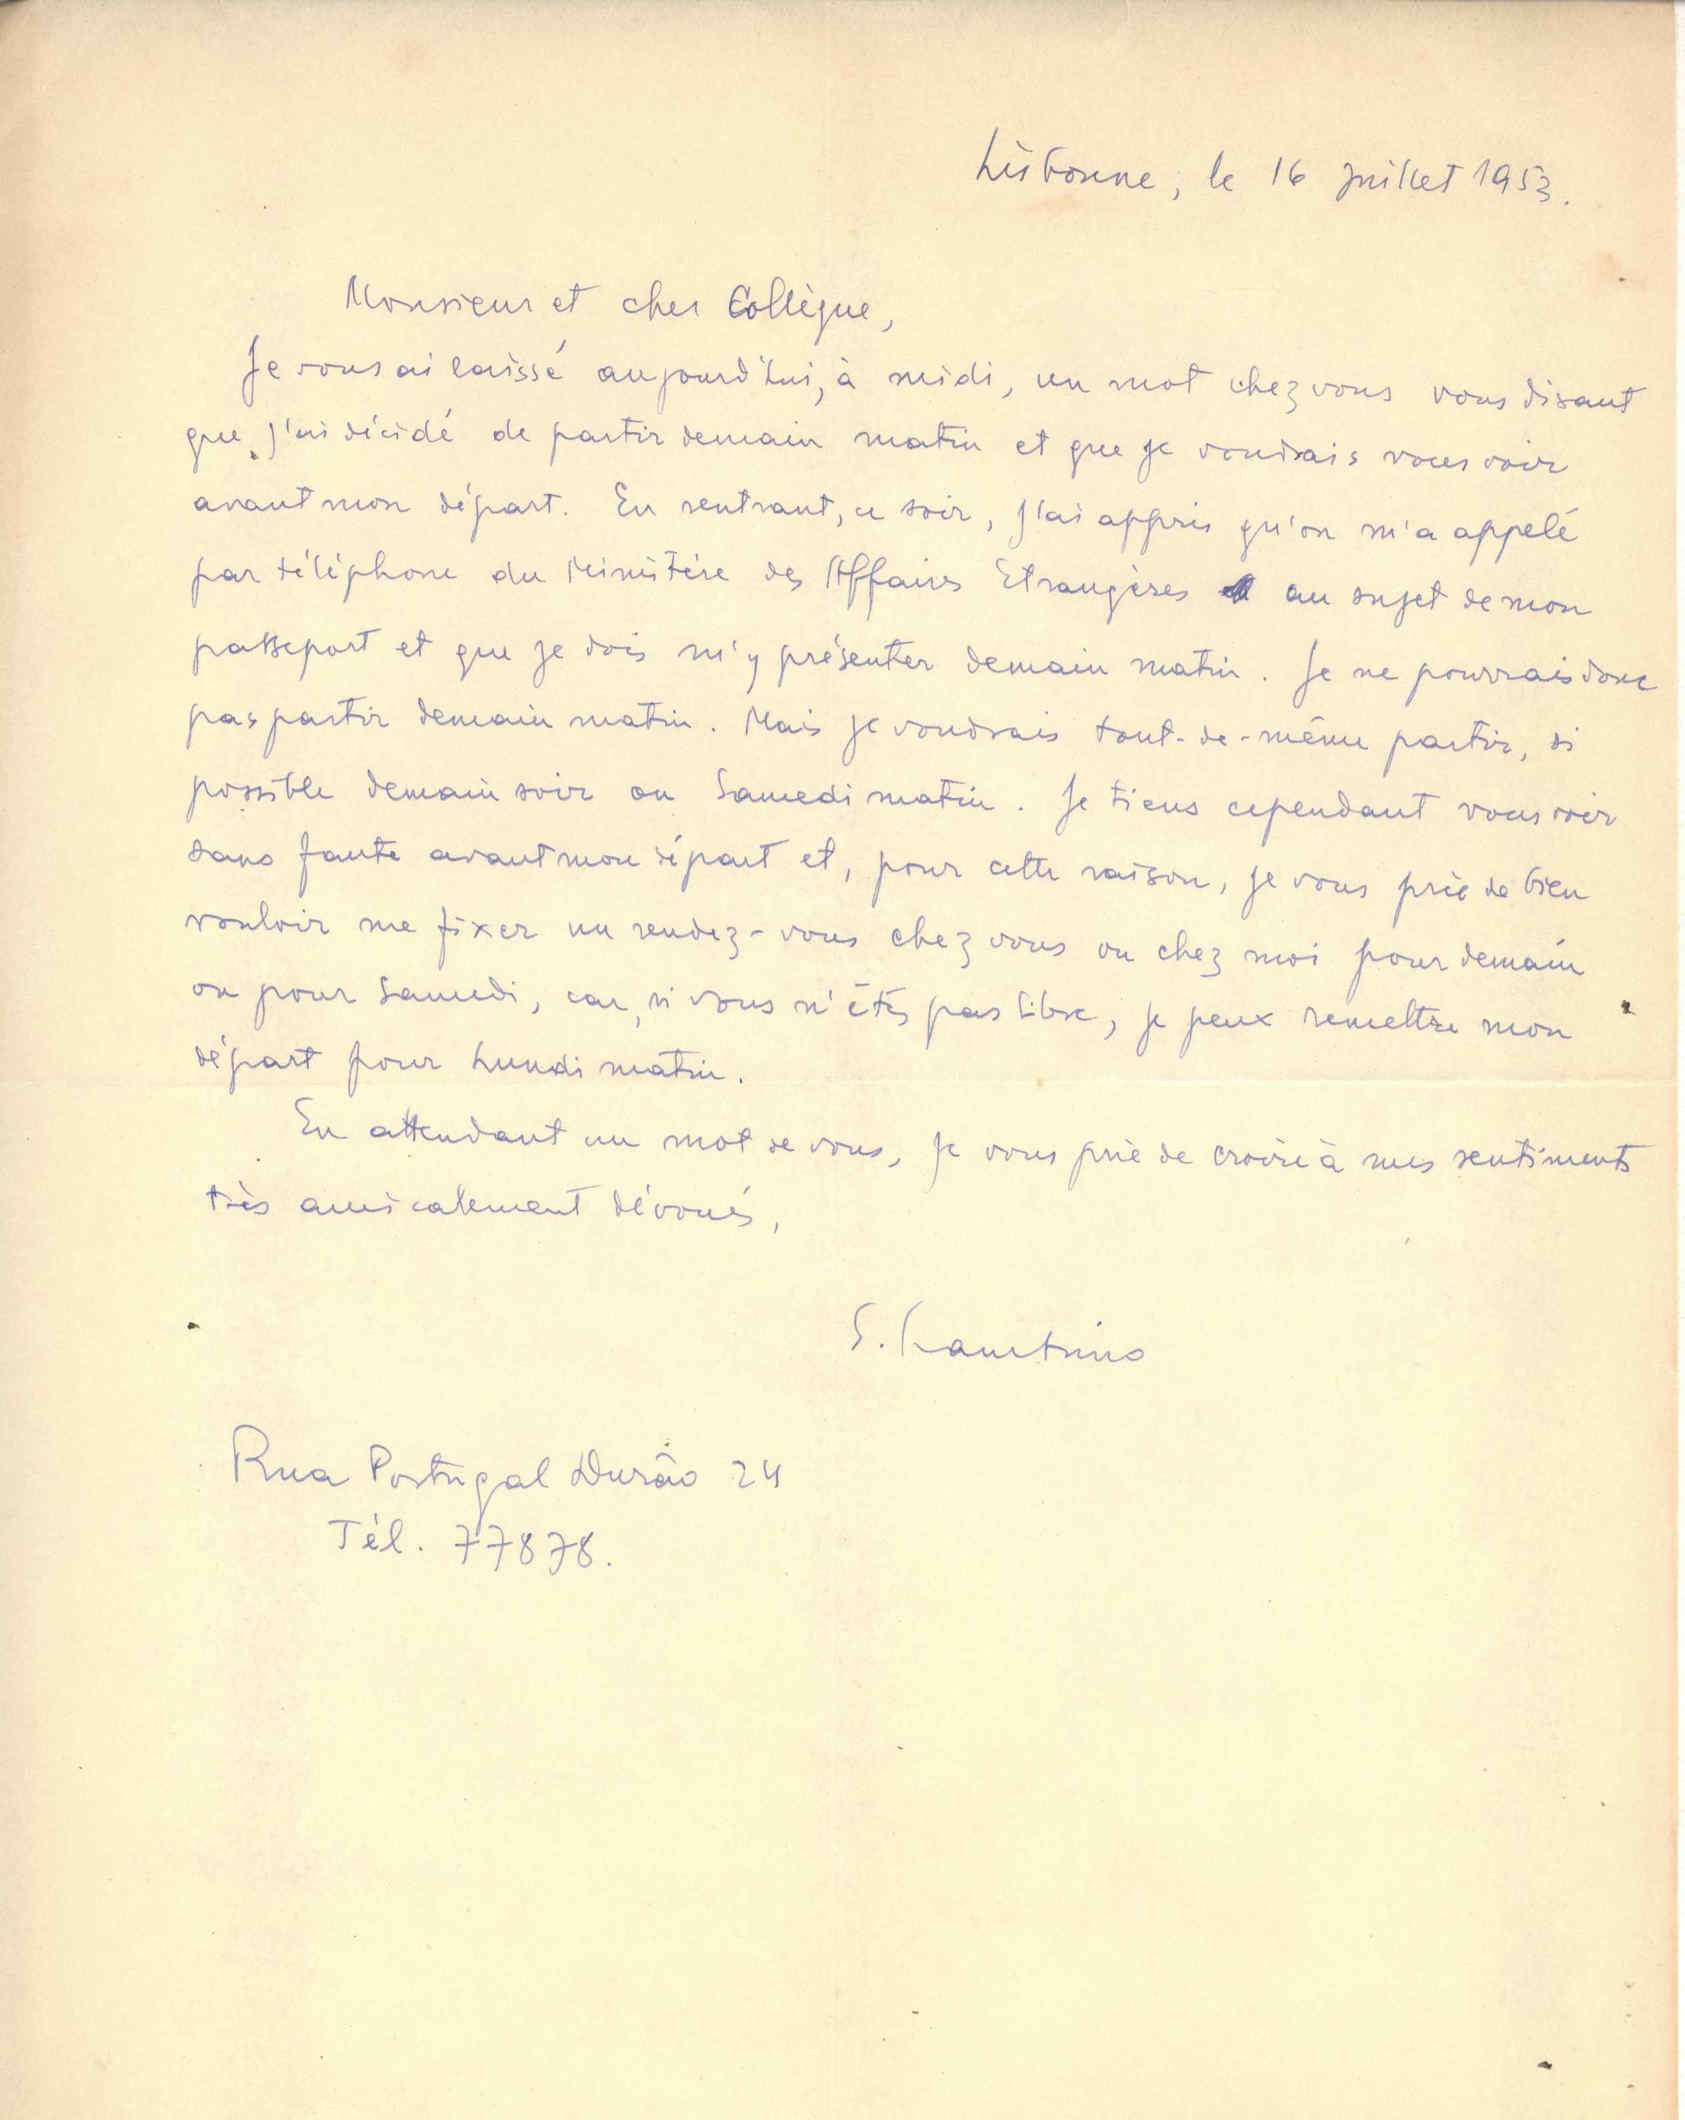 Lisbonne, le 16 juillet 1953.
Monsieur et cher Collègue,
Je vous ai laissé aujourd'hui, à midi, un mot chez vous vous disant
que j'ai décidé de partir demain matin et que je voudrais vous voir
avant mon départ. En rentrant, ce soir, j'ai appris qu'on m'a appelé
par téléphone du Ministère des Affaires Etrangères au sujet de mon
passeport et que je dois m'y présenter demain matin. Je ne pourrais donc
pas partir demain matin. Mais je voudrais tout-de-même partir, si
possible demain soir ou Samedi matin. Je tiens cependant vous voir
sans faute avant mon départ et, pour cette raison, je vous prie de bien
vouloir me fixer un rendez-vous chez vous ou chez moi pour demain
ou pour Samedi, car, si vous n'êtes pas libre, je peux remettre mon
départ pour Lundi matin.
En attendant un mot de vous, je vous prie de croire à mes sentiments
très amicalement dévoués,
S.
Rua Portugal Durão 24
Tél. 77878.